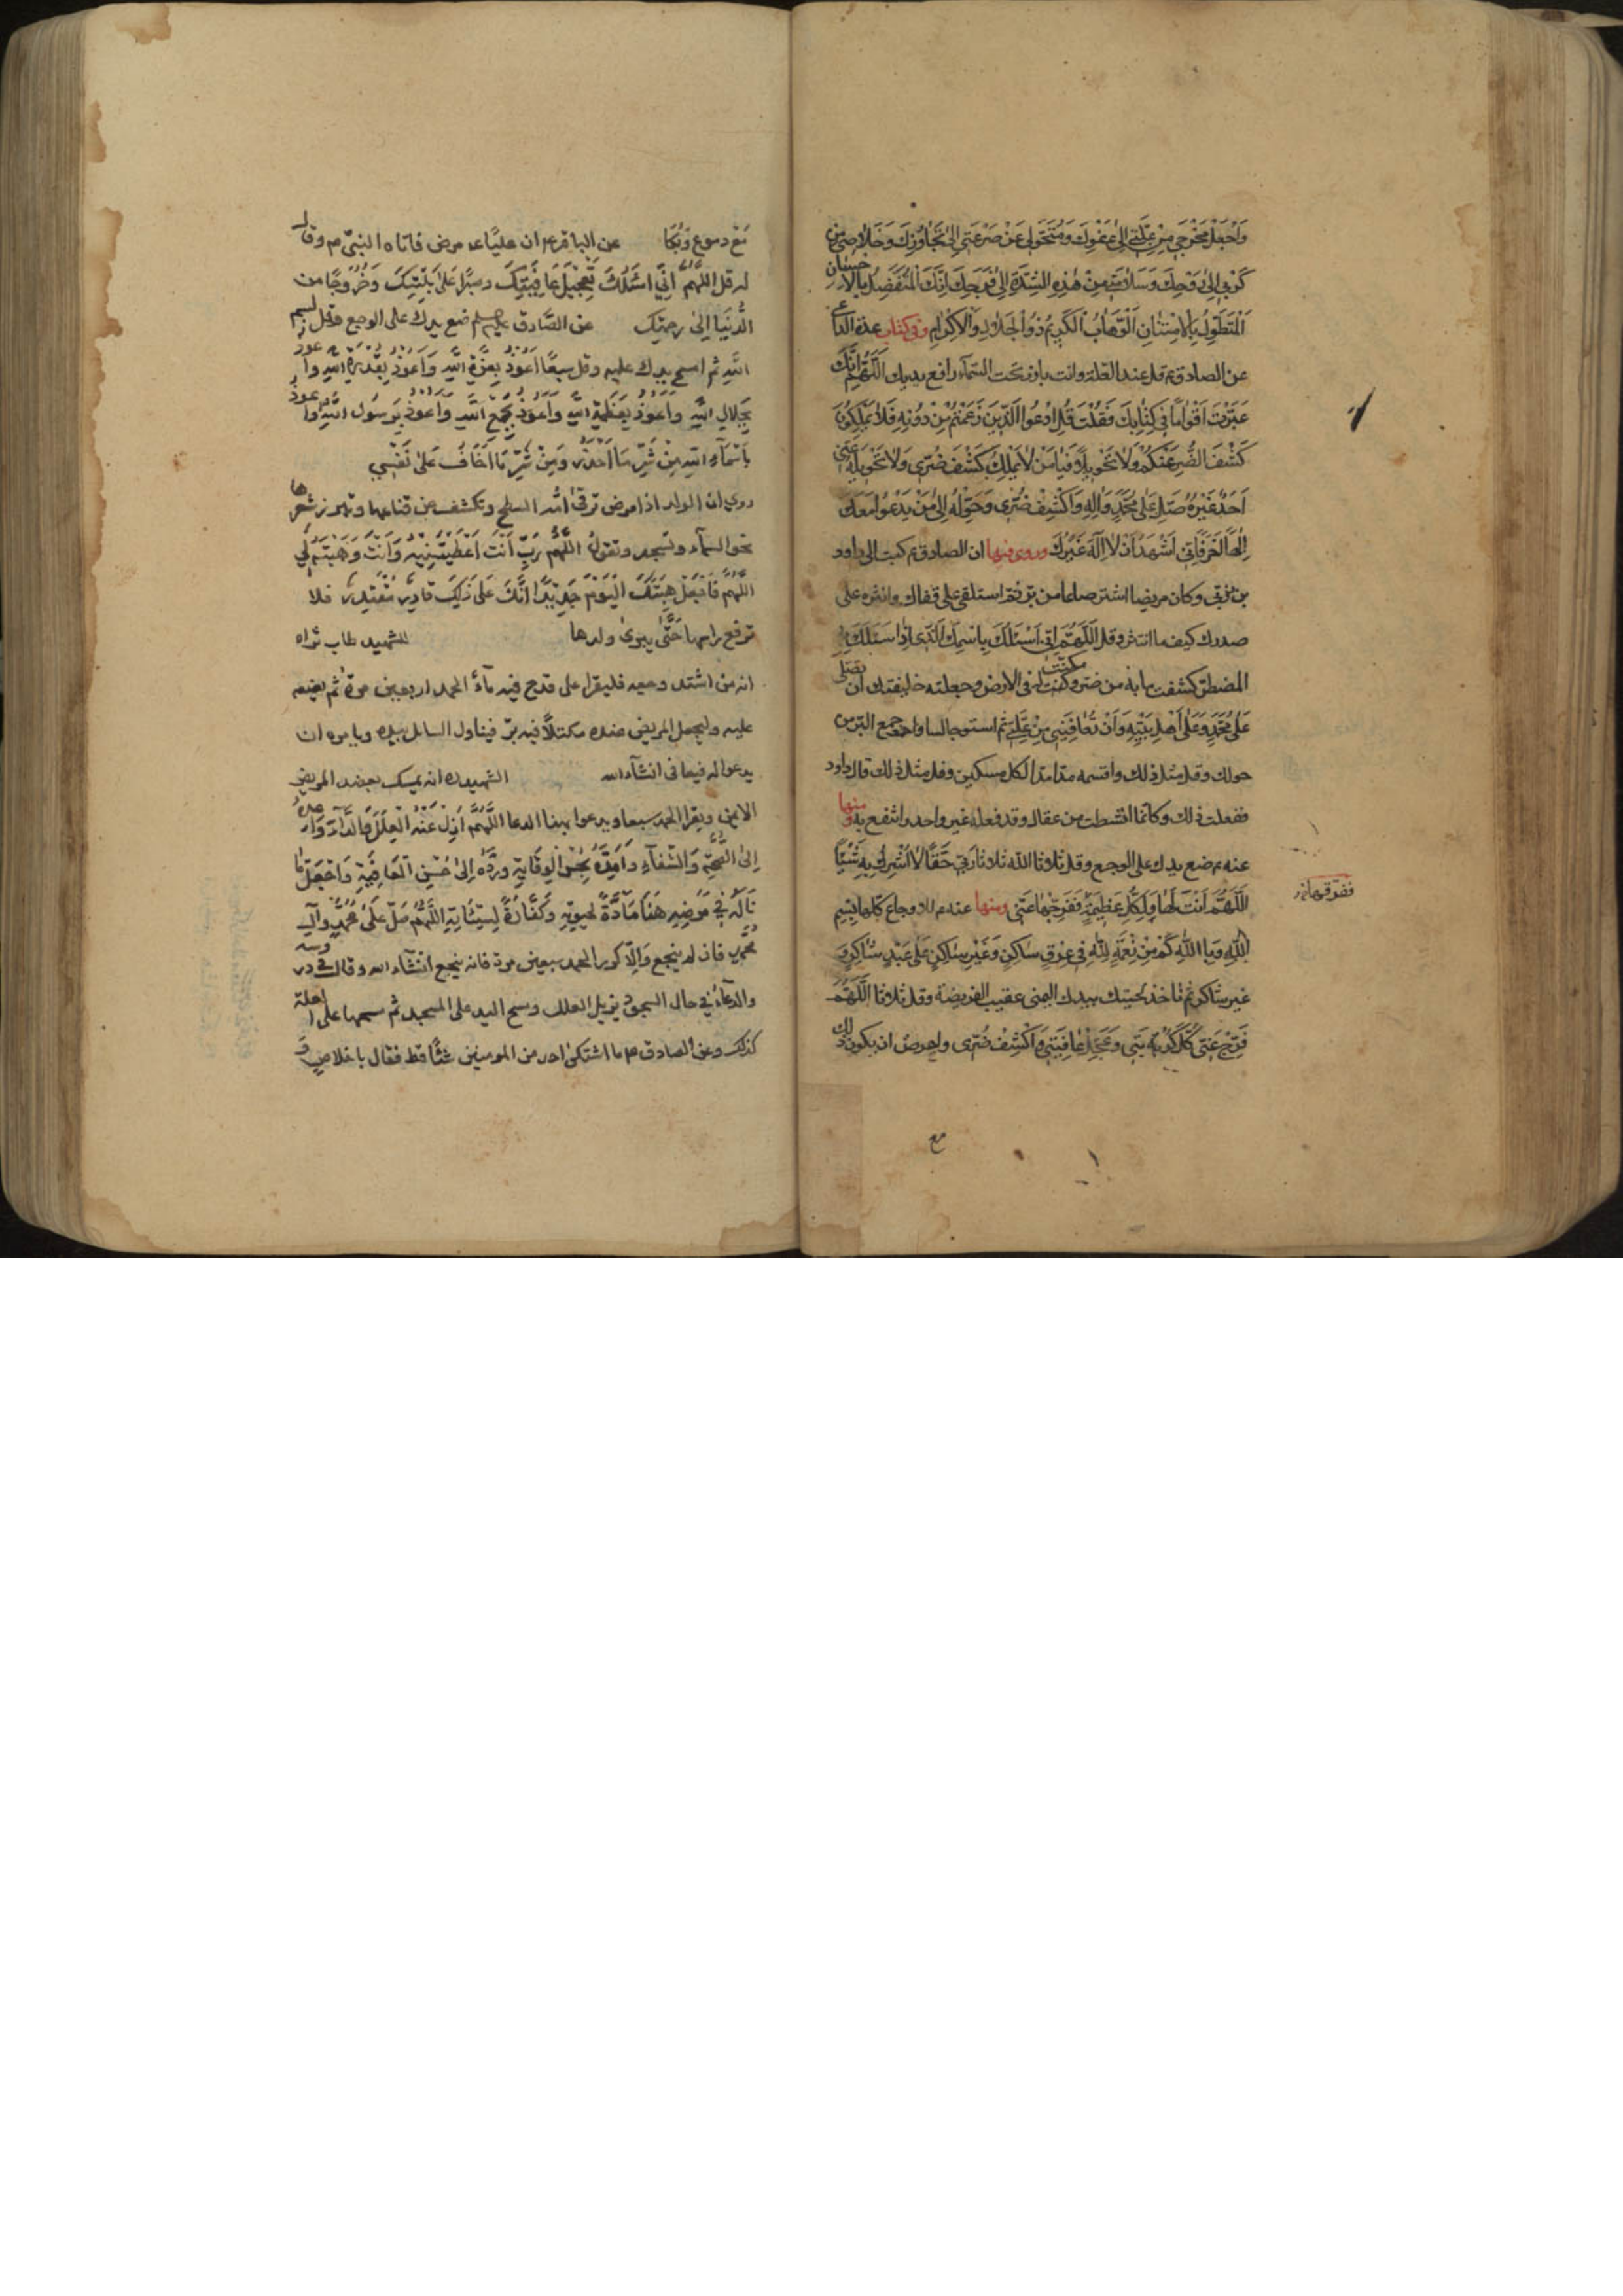 وَاجْعَلْ مَخْرَجِي مِنْ عِلَّتِي إِلَى عَفْوِكَ وَمُتَحَوَّلِي عَنْ صَرْعَتِي إِلَى تَجَاوُزِكَ وَخَلَاصِي مِنْ
كَرْبِي إِلَى رَوْحِكَ وَسَلَامَتِي مِنْ هٰذِهِ الشِّدَّةِ إِلَى فَرَجِكَ إِنَّكَ الْمُتَفَضِّلُ بِالْاِحْسَانِ
الْمُتَطَوِّلُ بِالْاِمْتِنَانِ الْوَهَّابُ الْكَرِيمُ ذُو الْجَلَالِ وَالْاِكْرَامِ وفي كتاب عدة الداعي
عن الصادق ع قل عند العلة وانت بارز تحت السماء رافع يديك اَللّٰهُمَّ اِنَّكَ
عَيَّرْتَ اَقْوَامًا فِي كِتَابِكَ فَقُلْتَ قُلِ ادْعُوا الَّذِينَ زَعَمْتُمْ مِنْ دُونِهِ فَلَا يَمْلِكُونَ
كَشْفَ الضُّرِّ عَنْكُمْ وَلَا تَحْوِيلًا فَيَا مَنْ لَا يَمْلِكُ كَشْفَ ضُرِّي وَلَا تَحْوِيلَهُ عَنِّي
اَحَدٌ غَيْرُهُ صَلِّ عَلَى مُحَمَّدٍ وَاٰلِهِ وَاكْشِفْ ضُرِّي وَحَوِّلْهُ اِلَى مَنْ يَدْعُوا مَعَكَ
اِلٰهًا اٰخَرَ فَاِنِّي اَشْهَدُ اَنْ لَا اِلٰهَ غَيْرُكَ وروى فيها ان الصادق ع كتب الى داود
بن زربي وكان مريضا اشتر صاعا من بر ثم استلقى على قفاك وانثره على
صدرك كيف ما انتثر وقل اَللّٰهُمَّ اِنِّي اَسْئَلُكَ بِاسْمِكَ الَّذِي اِذَا سَئَلَكَ بِهِ
المضطر كشفت ما به من ضر ومكنت له في الارض وجعلته خليفتك ان تصلي
عَلَى مُحَمَّدٍ وَعَلَى اَهْلِ بَيْتِهِ وَاَنْ تُعَافِيَنِي مِنْ عِلَّتِي ثم استو جالسا واجمع البر من
حولك وقل مثل ذلك واقسمه مدا مدا لكل مسكين وقل مثل ذلك قال داود
ففعلت ذلك وكانما انشطت من عقال وقد فعله غير واحد وانتفع به ومنها
عنه ع ضع يدك على الوجع وقل ثلاثا اَللّٰهُ ثلاثا رَبِّي حَقًّا لَا اُشْرِكُ بِهِ شَيْئًا
اَللّٰهُمَّ اَنْتَ لَهَا وَلِكُلِّ عَظِيمَةٍ فَفَرِّجْهَا عَنِّي ومنها عنه ع للاوجاع كلها بِسْمِ
اللهِ وَبِاللهِ كَمْ مِنْ نِعْمَةٍ لِلّٰهِ فِي عِرْقٍ سَاكِنٍ وَغَيْرِ سَاكِنٍ عَلَى عَبْدٍ شَاكِرٍ وَ
غير شاكر ثم تاخذ لحيتك بيدك اليمنى عقيب الفريضة وقل ثلاثا اَللّٰهُمَّ
فَرِّجْ عَنِّي كُرْبَتِي وَعَجِّلْ عَافِيَتِي وَاكْشِفْ ضُرِّي واحرص ان يكون ذلك
مع
مع دموع وبكا عن الباقر ع ان عليا ع مرض فاتاه النبي م وقال
له قل اللهم اني اسئلك تعجيل عافيتك وصبرا على بليتك وخروجا من
الدنيا الى رحمتك عن الصادق ضع يدك على الوجع وقل بسم
الله ثم امسح يدك عليه وقل سبعا اعوذ بعزة الله واعوذ بقدرة الله واعوذ
بجلال الله واعوذ بعظمة الله واعوذ بجمع الله واعوذ برسول الله واعوذ
باسماء الله من شر ما احذر ومن شر ما اخاف على نفسي
روي ان الولد اذا مرض ترقى امه السطح وتكشف عن قناعها وتبرز شعرها
نحو السماء وتسجد وتقول اللهم رب انت اعطيتنيه وانت وهبته لي
اللهم فاجعل هبتك اليوم جديدة انك على ذلك قادر مقتدر فلا
ترفع راسها حتى يبرئ ولدها للشهيد طاب ثراه
انه من اشتد وجعه فليقرا على قدح فيه ماء الحمد اربعين مرة ثم يضعه
عليه وليجعل المريض عنده مكتلا فيه بر فيناول السائل بيده ويامره ان
يدعو له فيعافى انشاء الله الشهيد ره انه يمسك بعضد المريض
الايمن ويقرا الحمد سبعا ويدعو بهذا الدعا اللهم ازل عنه العلل والداء واعده
الى الصحة والشفاء وامده بحسن الوقاية ورده الى حسن العافية واجعل ما
ناله في مرضه هذا مادة لحيوته وكفارة لسيئاته اللهم صل على محمد وآل
محمد فان لم ينجع والا كرر الحمد سبعين مرة فانه ينجع انشاء الله وقال في دروسه
والدعاء في حال السجود يزيل العلل ومسح اليد على المسجد ثم مسحها على العلة
كذلك وعن الصادق ع ما اشتكى احد من المومنين شيئا قط فقال باخلاص و